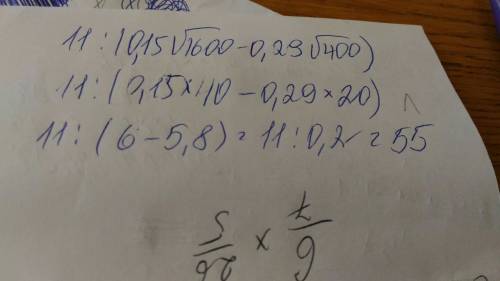 11 : (0,15√1600 - 0,29√400)
11 : (0,15 × 40 - 0,29 × 20)
11 : (6 - 5,8) = 11 : 0,2 = 55
6/7 × 26/5